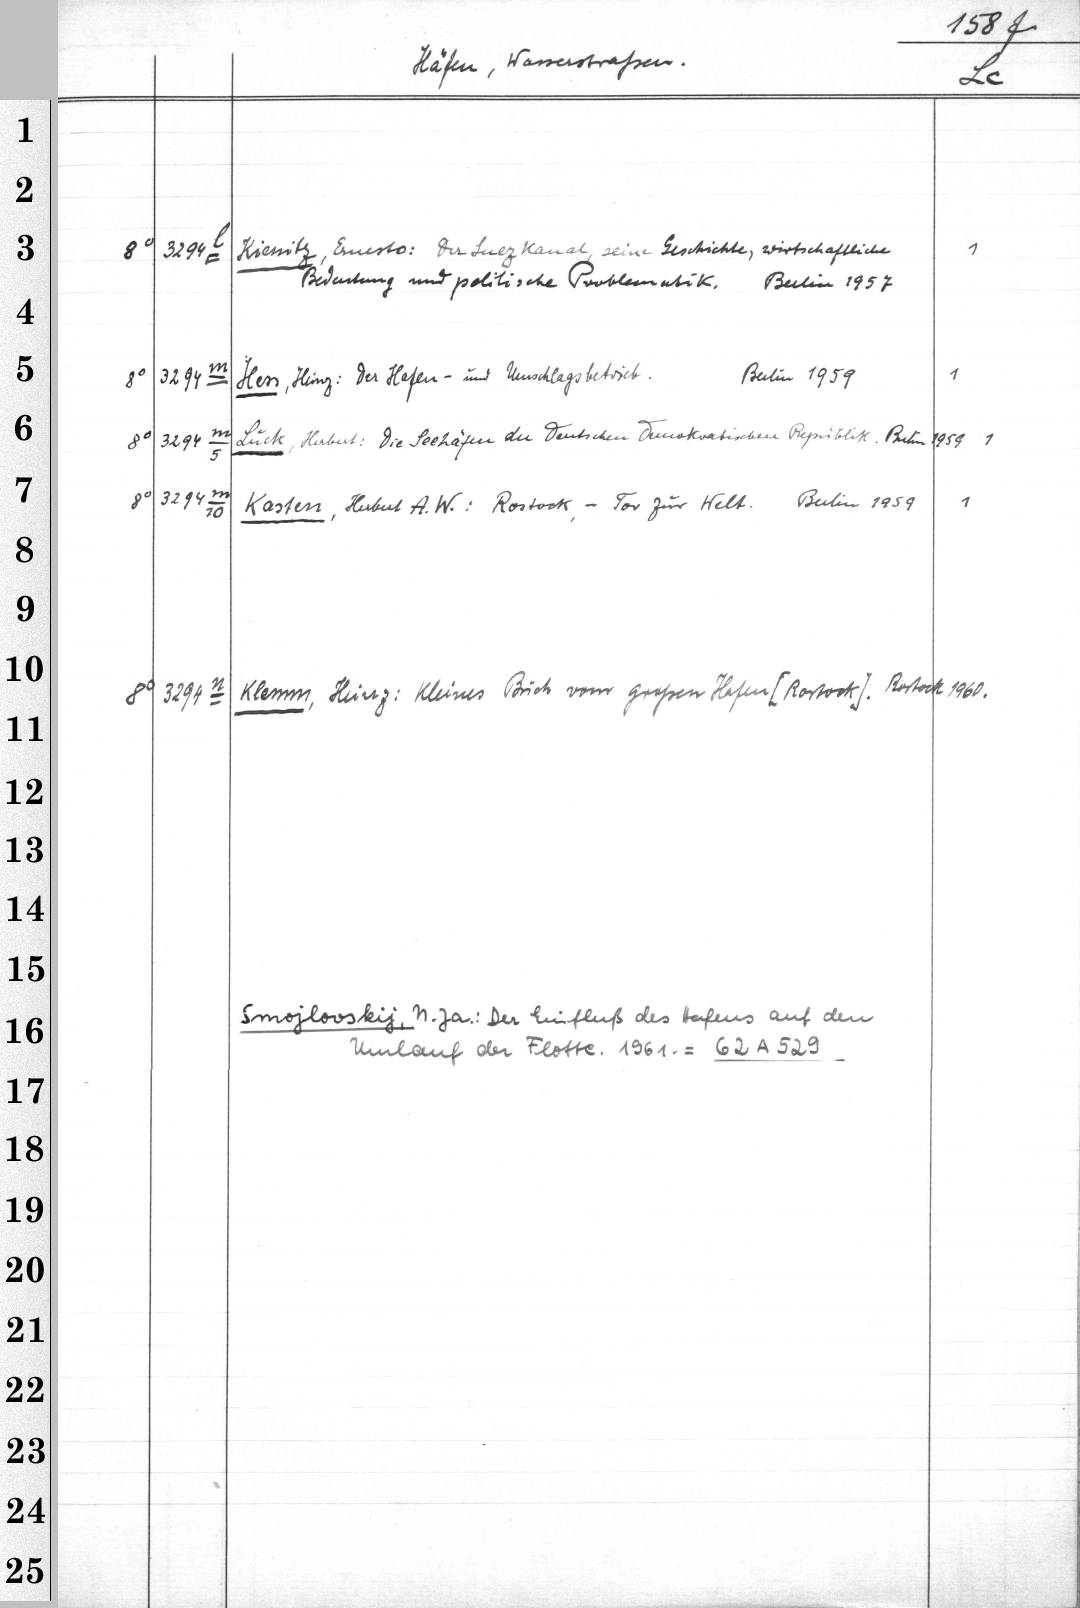 158 f
Häfen, Wasserstraßen.
Lc
1
2
3
8° 3294 l Kienitz, Ernesto: Der Suez Kanal, seine Geschichte, wirtschaftliche 1
Bedeutung und politische Problematik. Berlin 1957
4
5
8° 3294 m Hess, Heinz: Der Hafen- und Umschlagsbetrieb. Berlin 1959 1
6
8° 3294 m/5 Lück, Herbert: Die Seehäfen der Deutschen Demokratischen Republik. Berlin 1959 1
7
8° 3294 m/10 Kasten, Herbert A. W.: Rostock, - Tor zur Welt. Berlin 1959 1
8
9
10
8° 3294 n Klemm, Heinz: Kleines Buch vom großen Hafen [Rostock]. Rostock 1960.
11
12
13
14
15
16
Smojlovskij, N. Ja.: Der Einfluß des Hafens auf den
Umlauf der Flotte. 1961. = 62 A 529
17
18
19
20
21
22
23
24
25